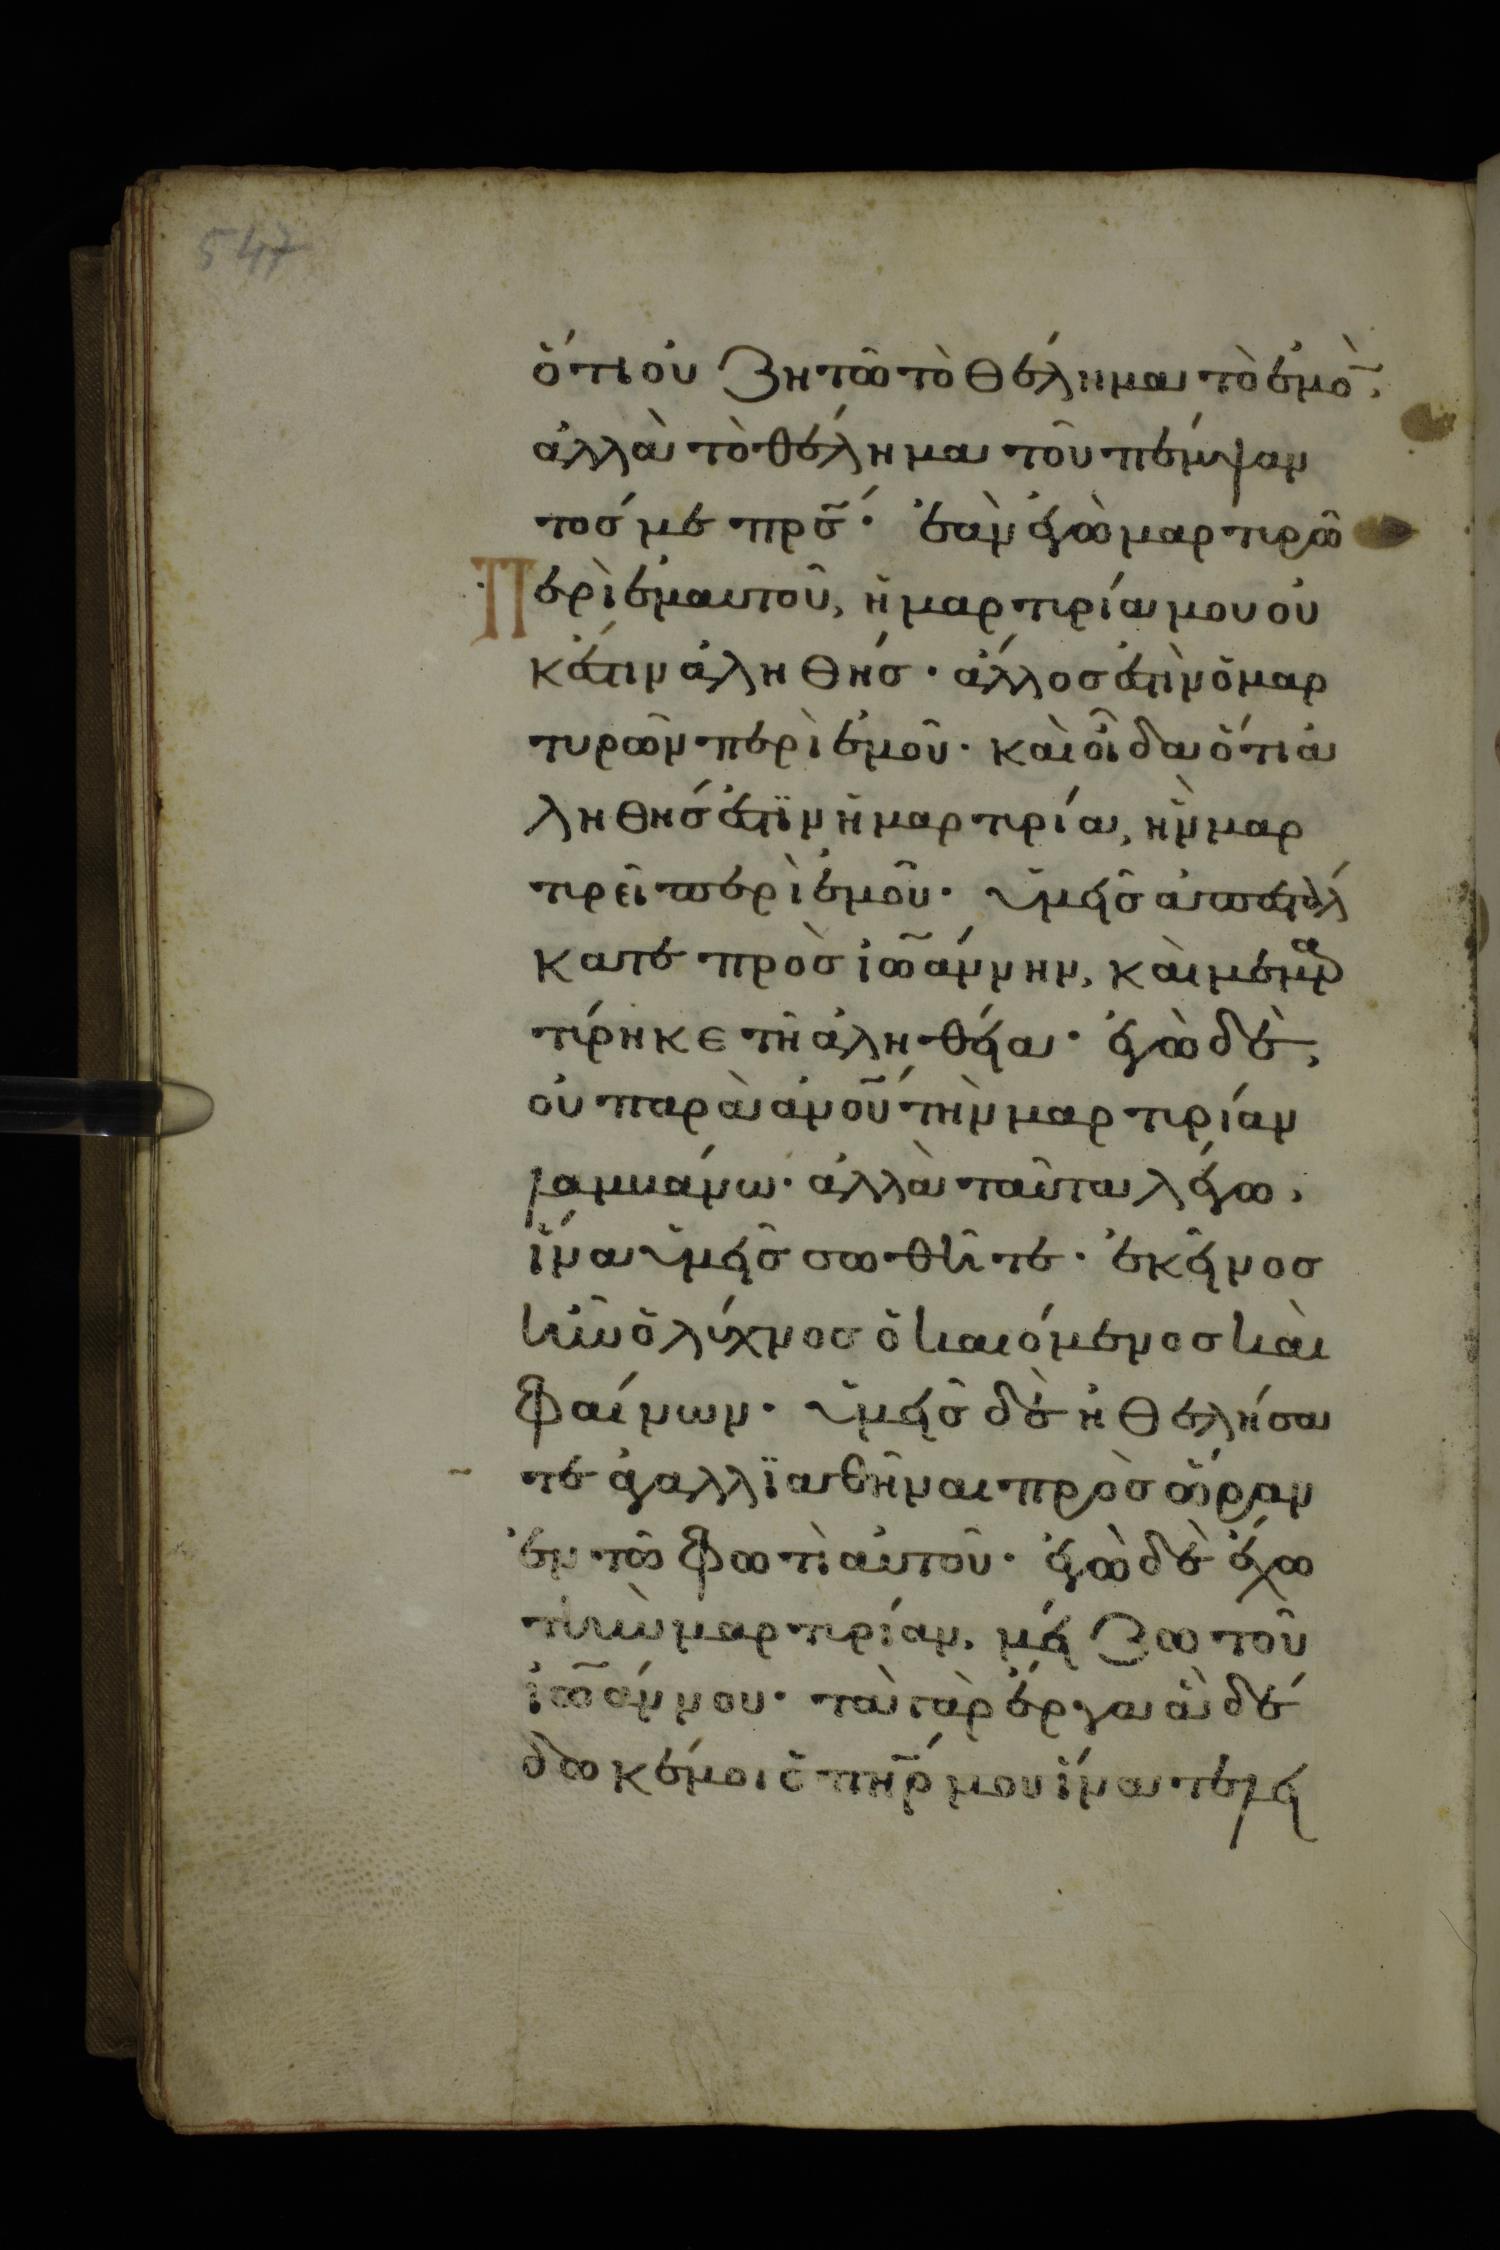 547
ὅτι οὐ ζητῶ τὸ θέλημα τὸ ἐμὸ̃,
ἀλλὰ τὸ θέλημα τοῦ πέμψαν
τόσ με πρ̅σ· ἐὰν ἐγὼ μαρτυρῶ
Περὶ ἐμαυτοῦ, ἡ μαρτυρία μου οὐ
κ ἔστιν ἀληθήσ· ἄλλοσ ἐστὶν ὁ μαρ
τυρῶν περὶ ἐμοῦ· καὶ οἶδα ὅτι ἀ
ληθήσ ἐστϊν ἡ μαρτυρία, ἣν μαρ
τυρεῖ περὶ ἐμοῦ· ὑμεῖσ ἀπεστάλ
κατε πρὸσ ἰω̅άννην, καὶ μεμαρ
τύρηκε τῆ ἀληθεία· ἐγὼ δὲ,
οὐ παρὰ ἀν̅ου τὴν μαρτυρίαν
λαμβάνω· ἀλλὰ ταῦτα λέγω,
ἵνα ὑμεῖσ σωθῆτε· ἐκεῖνοσ
ἦν ὁ λύχνοσ ὁ καιόμενοσ καὶ
φαίνων· ὑμεῖσ δὲ ἠθελήσα
τε ἀγαλλϊαθῆναι πρὸσ ὥραν
ἐν τῶ φωτὶ αὐτοῦ· ἐγὼ δὲ ἔχω
τὴν μαρτυρίαν, μείζω τοῦ
ἰω̅άννου· τὰ γὰρ ἔργα ἃ δέ
δωκέ μοι ὁ πη̅ρ μου ἵνα τελει